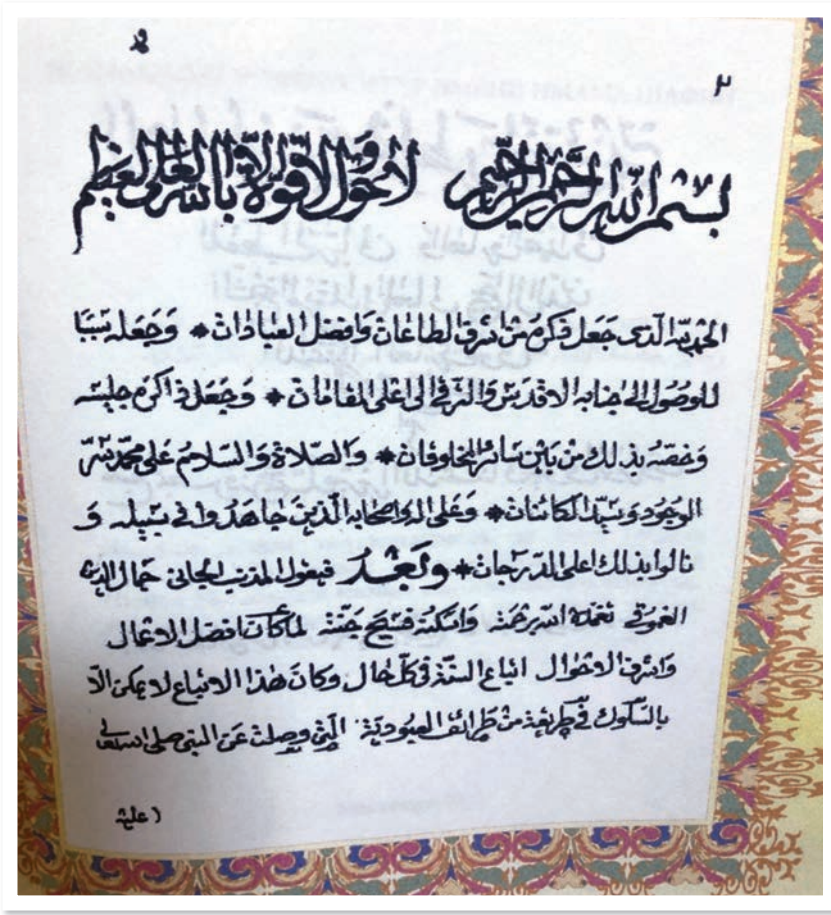 ٢
بسم الله الرحمن الرحيم لا حول ولا قوة الا بالله العلي العظيم
الحمد لله الذى جعل ذكره من اشرف الطاعات وافضل العبادات * وجعله سببا
للوصول الى جنابه الاقدس والترقى الى اعلى المقامات * وجعل ذاكره جليسه
وخصه بذلك من بين سائر المخلوقات * والصلاة والسلام على محمد سر
الوجود وسيد الكائنات * وعلى اله واصحابه الذين جاهدوا فى سبيله و
نالوا بذلك اعلى الدرجات * وبعد فيقول المذنب الجانى جمال الدين
الغموقى تغمده الله برحمته واسكنه فسيح جنته لما كان افضل الاعمال
واشرف الاحوال اتباع السنة فى كل حال وكان هذا الاتباع لا يمكن الا
بالسلوك فى طريقة من طرائق العبودية التى وصلت عن النبى صلى الله تعالى
عليه